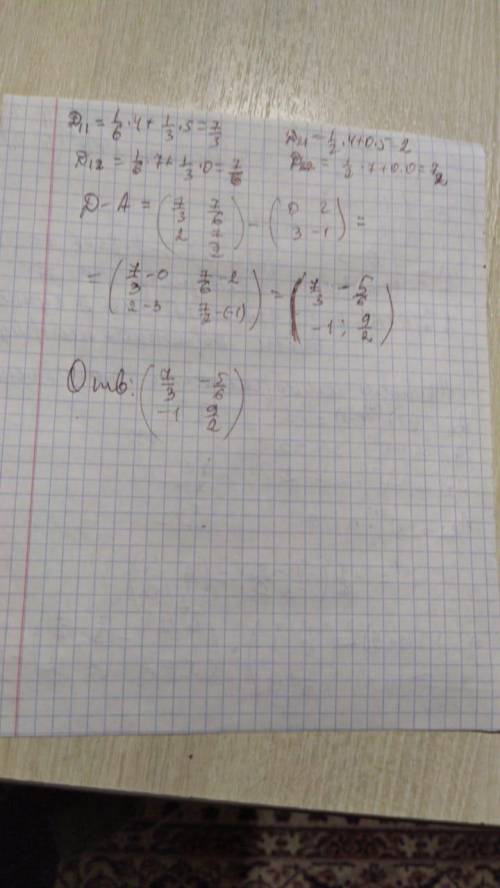 D₁₁ = 1/6 · 4 + 1/3 · 5 = 7/3
D₂₁ = 1/2 · 4 + 0 · 5 = 2
D₁₂ = 1/6 · 7 + 1/3 · 0 = 7/6
D₂₂ = 1/2 · 7 + 0 · 0 = 7/2
D - A = (7/3 7/6; 2 7/2) - (0 2; 3 -1) =
= (7/3 - 0 7/6 - 2; 2 - 3 7/2 - (-1)) = (7/3 -5/6; -1; 9/2)
Отв: (7/3 -5/6; -1 9/2)